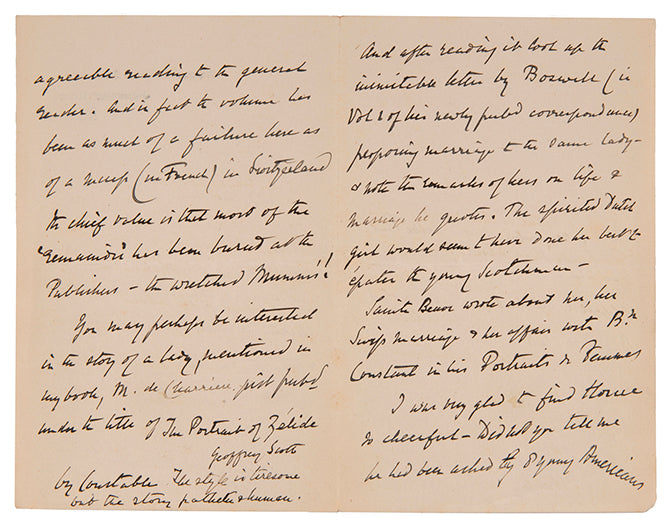 agreeable reading to the general
reader. And in fact the volume has
been as much of a failure here as
of a success (in French) in Switzerland
Its chief value is that most of the
"remainder" has been burned at the
Publishers – the wretched Murrays'!
You may perhaps be interested
in the story of a lady, mentioned in
my book, M. de Charriere, just pubd
under the title of The Portrait of Zélide
Geoffrey Scott
by Constable The style is tiresome
but the story pathetic & human.
And after reading it look up the
inimitable letter by Boswell (in
Vol 1 of his newly pubd correspondence)
proposing marriage to the same lady –
& note the remarks of hers on life &
marriage he quotes. The spirited Dutch
girl would seem to have done her best to
épater the young Scotchman –
Sainte Beuve wrote about her, her
Swiss marriage & her affair with Bn
Constant in his Portraits de Femmes
I was very glad to find Horace
so cheerful – Did not you tell me
he had been asked by 8 young Americans